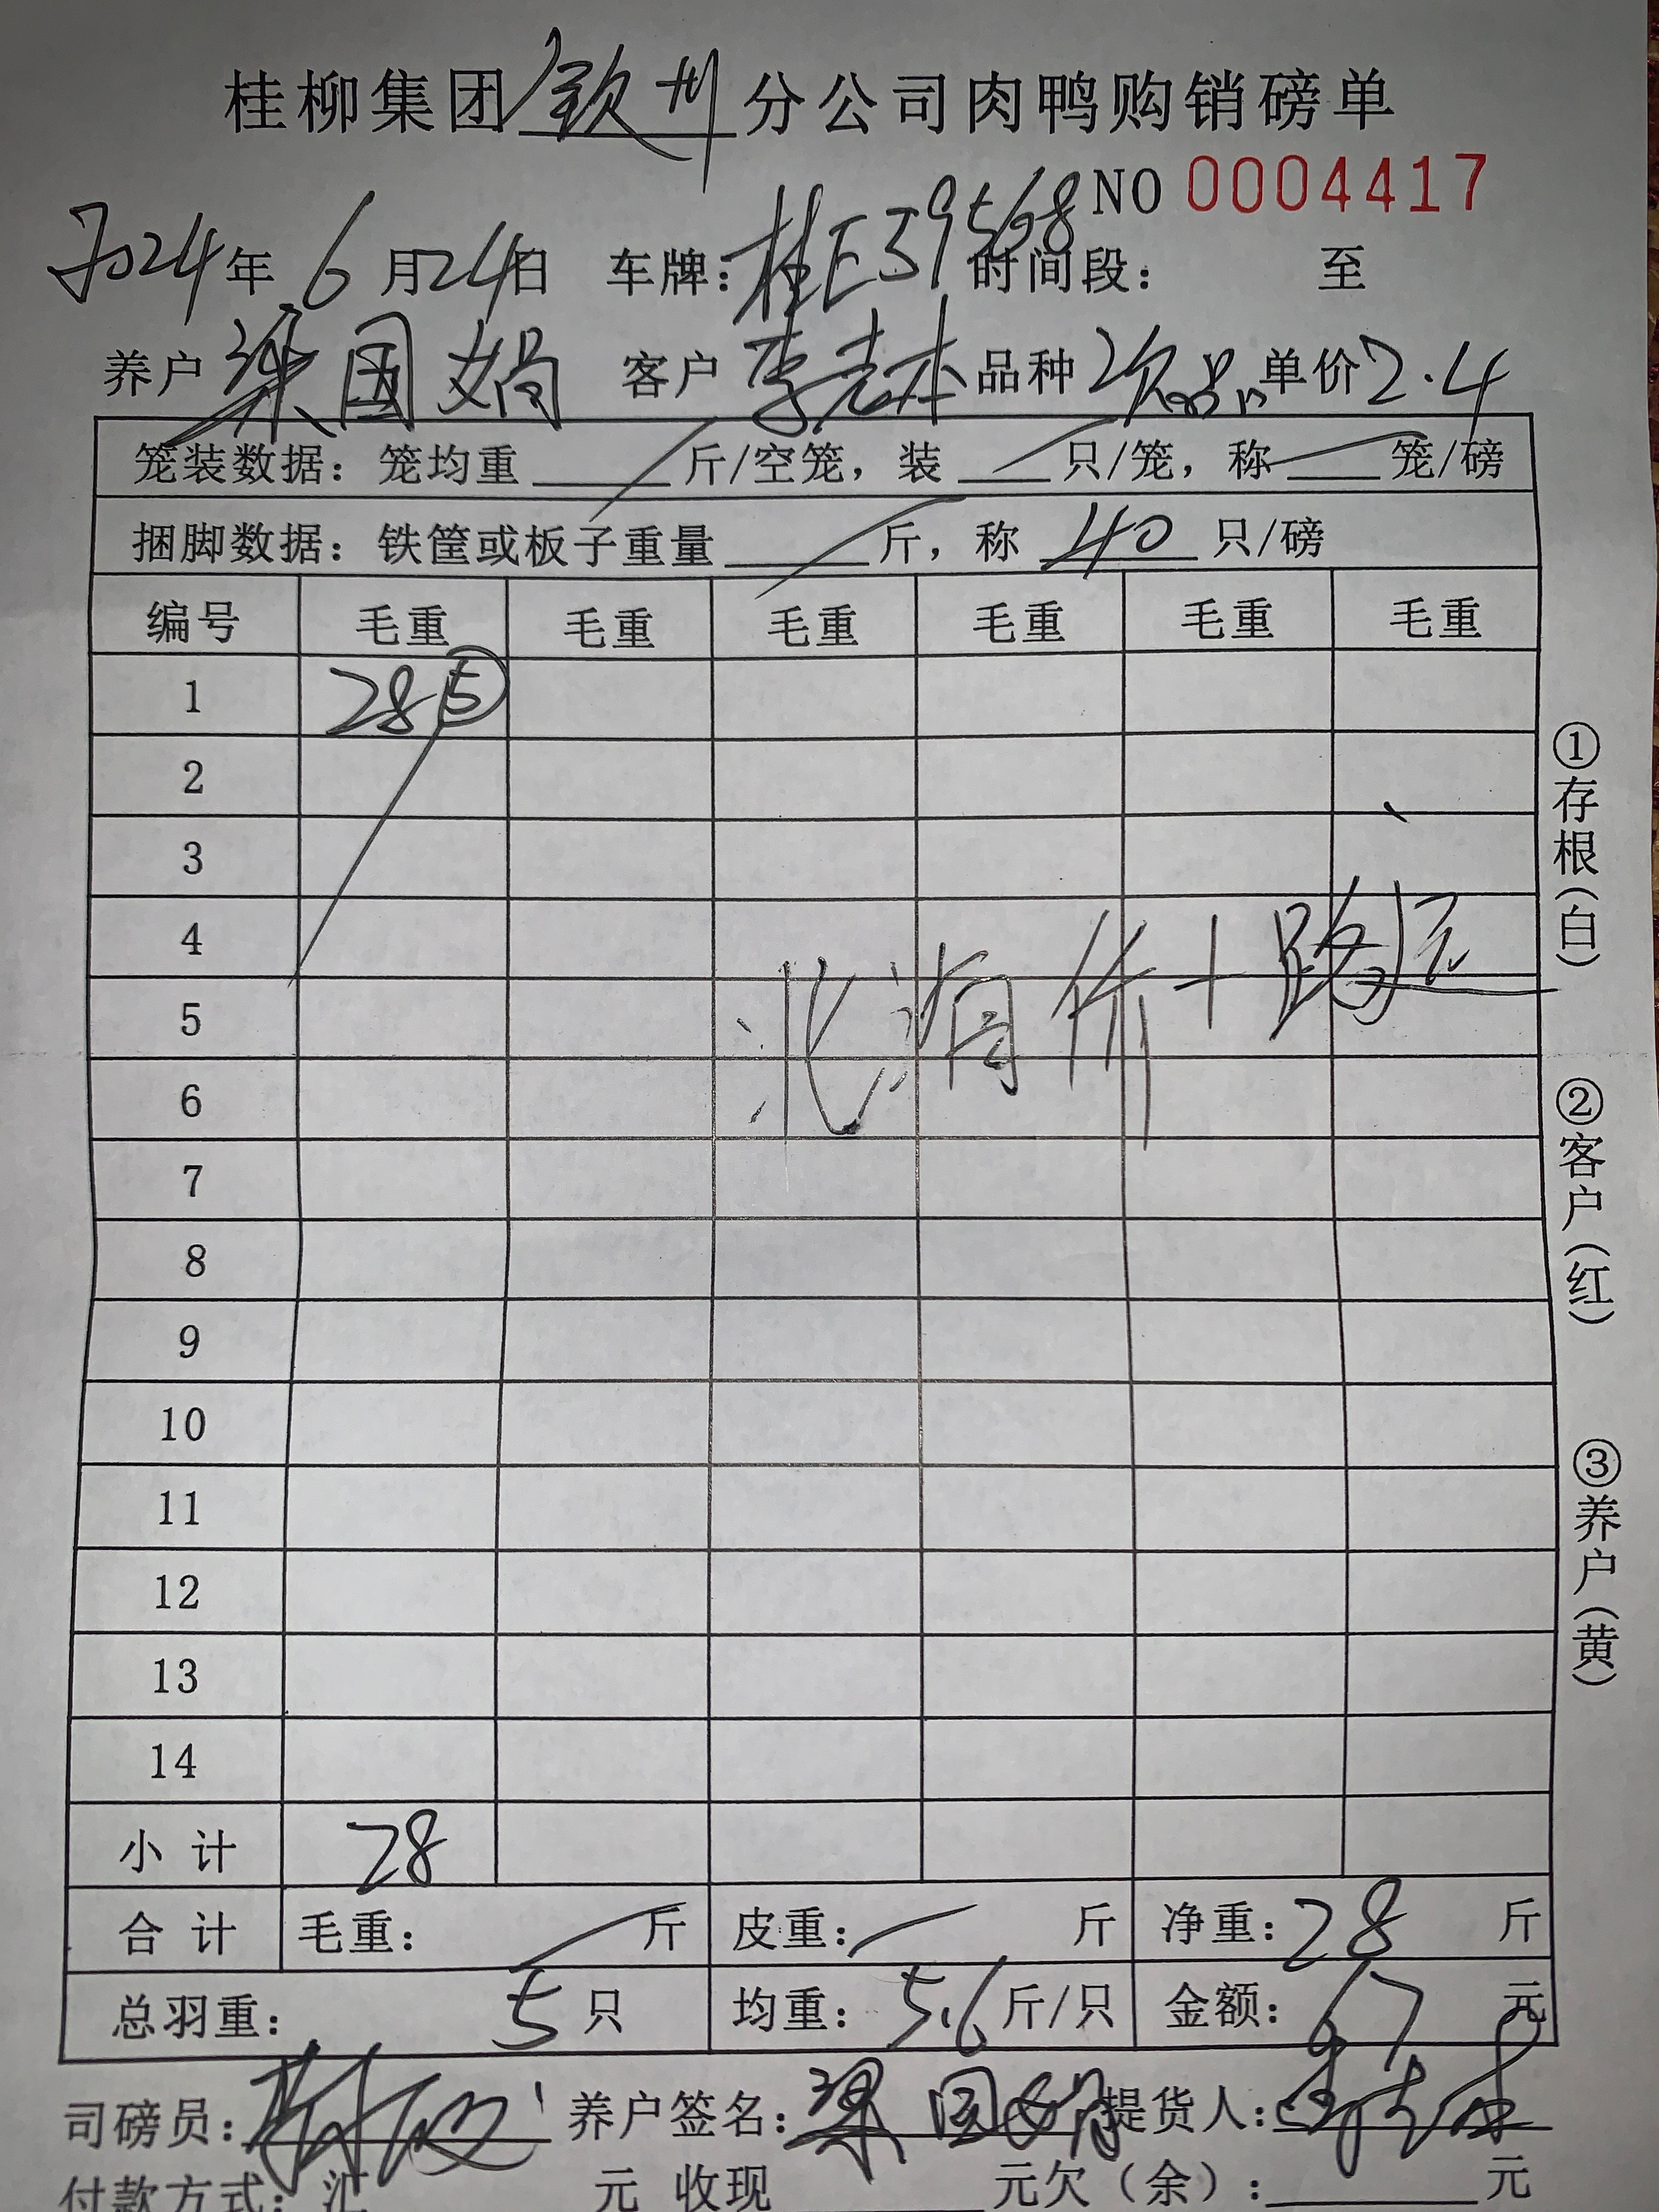 桂柳集团钦州分公司肉鸭购销磅单
NO 0004417
2024年6月24日 车牌：桂E39568 时间段： 至
养户 梁国娟 客户 李志本 品种 次品 单价 2.4
笼装数据：笼均重 斤/空笼，装 只/笼，称 笼/磅
捆脚数据：铁筐或板子重量 斤，称 40 只/磅
编号 毛重 毛重 毛重 毛重 毛重 毛重
1 28 ⑤
2
3
4
5
6
7
8
9
10
11
12
13
14
价+路远
小计 28
合计 毛重： 斤 皮重： 斤 净重：28 斤
总羽重： 5 只 均重：5.6 斤/只 金额：67 元
司磅员： 养户签名：梁国娟 提货人：
付款方式：汇 元 收现 元欠（余）： 元
①存根（白）
②客户（红）
③养户（黄）